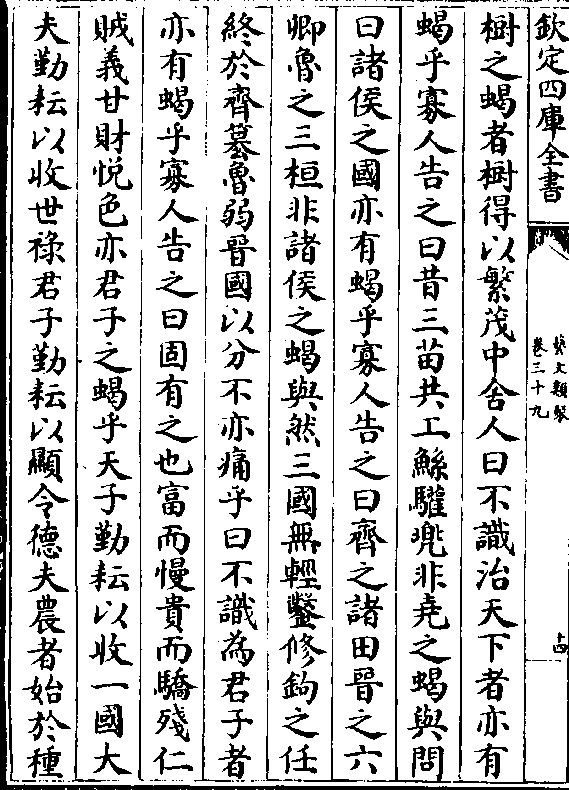 欽定四庫全書
藝文類聚
卷三十九
十四
樹之蝎者樹得以繁茂中舍人曰不識治天下者亦有
蝎乎寡人告之曰昔三苗共工鯀驩兜非堯之蝎與問
曰諸侯之國亦有蝎乎寡人告之曰齊之諸田晉之六
卿魯之三桓非諸侯之蝎與然三國無輕鐅修鉤之任
終於齊簒魯弱晉國以分不亦痛乎曰不識為君子者
亦有蝎乎寡人告之曰固有之也富而慢貴而驕殘仁
賊義甘財悅色亦君子之蝎乎天子勤耘以收一國大
夫勤耘以收世祿君子勤耘以顯令德夫農者始於種